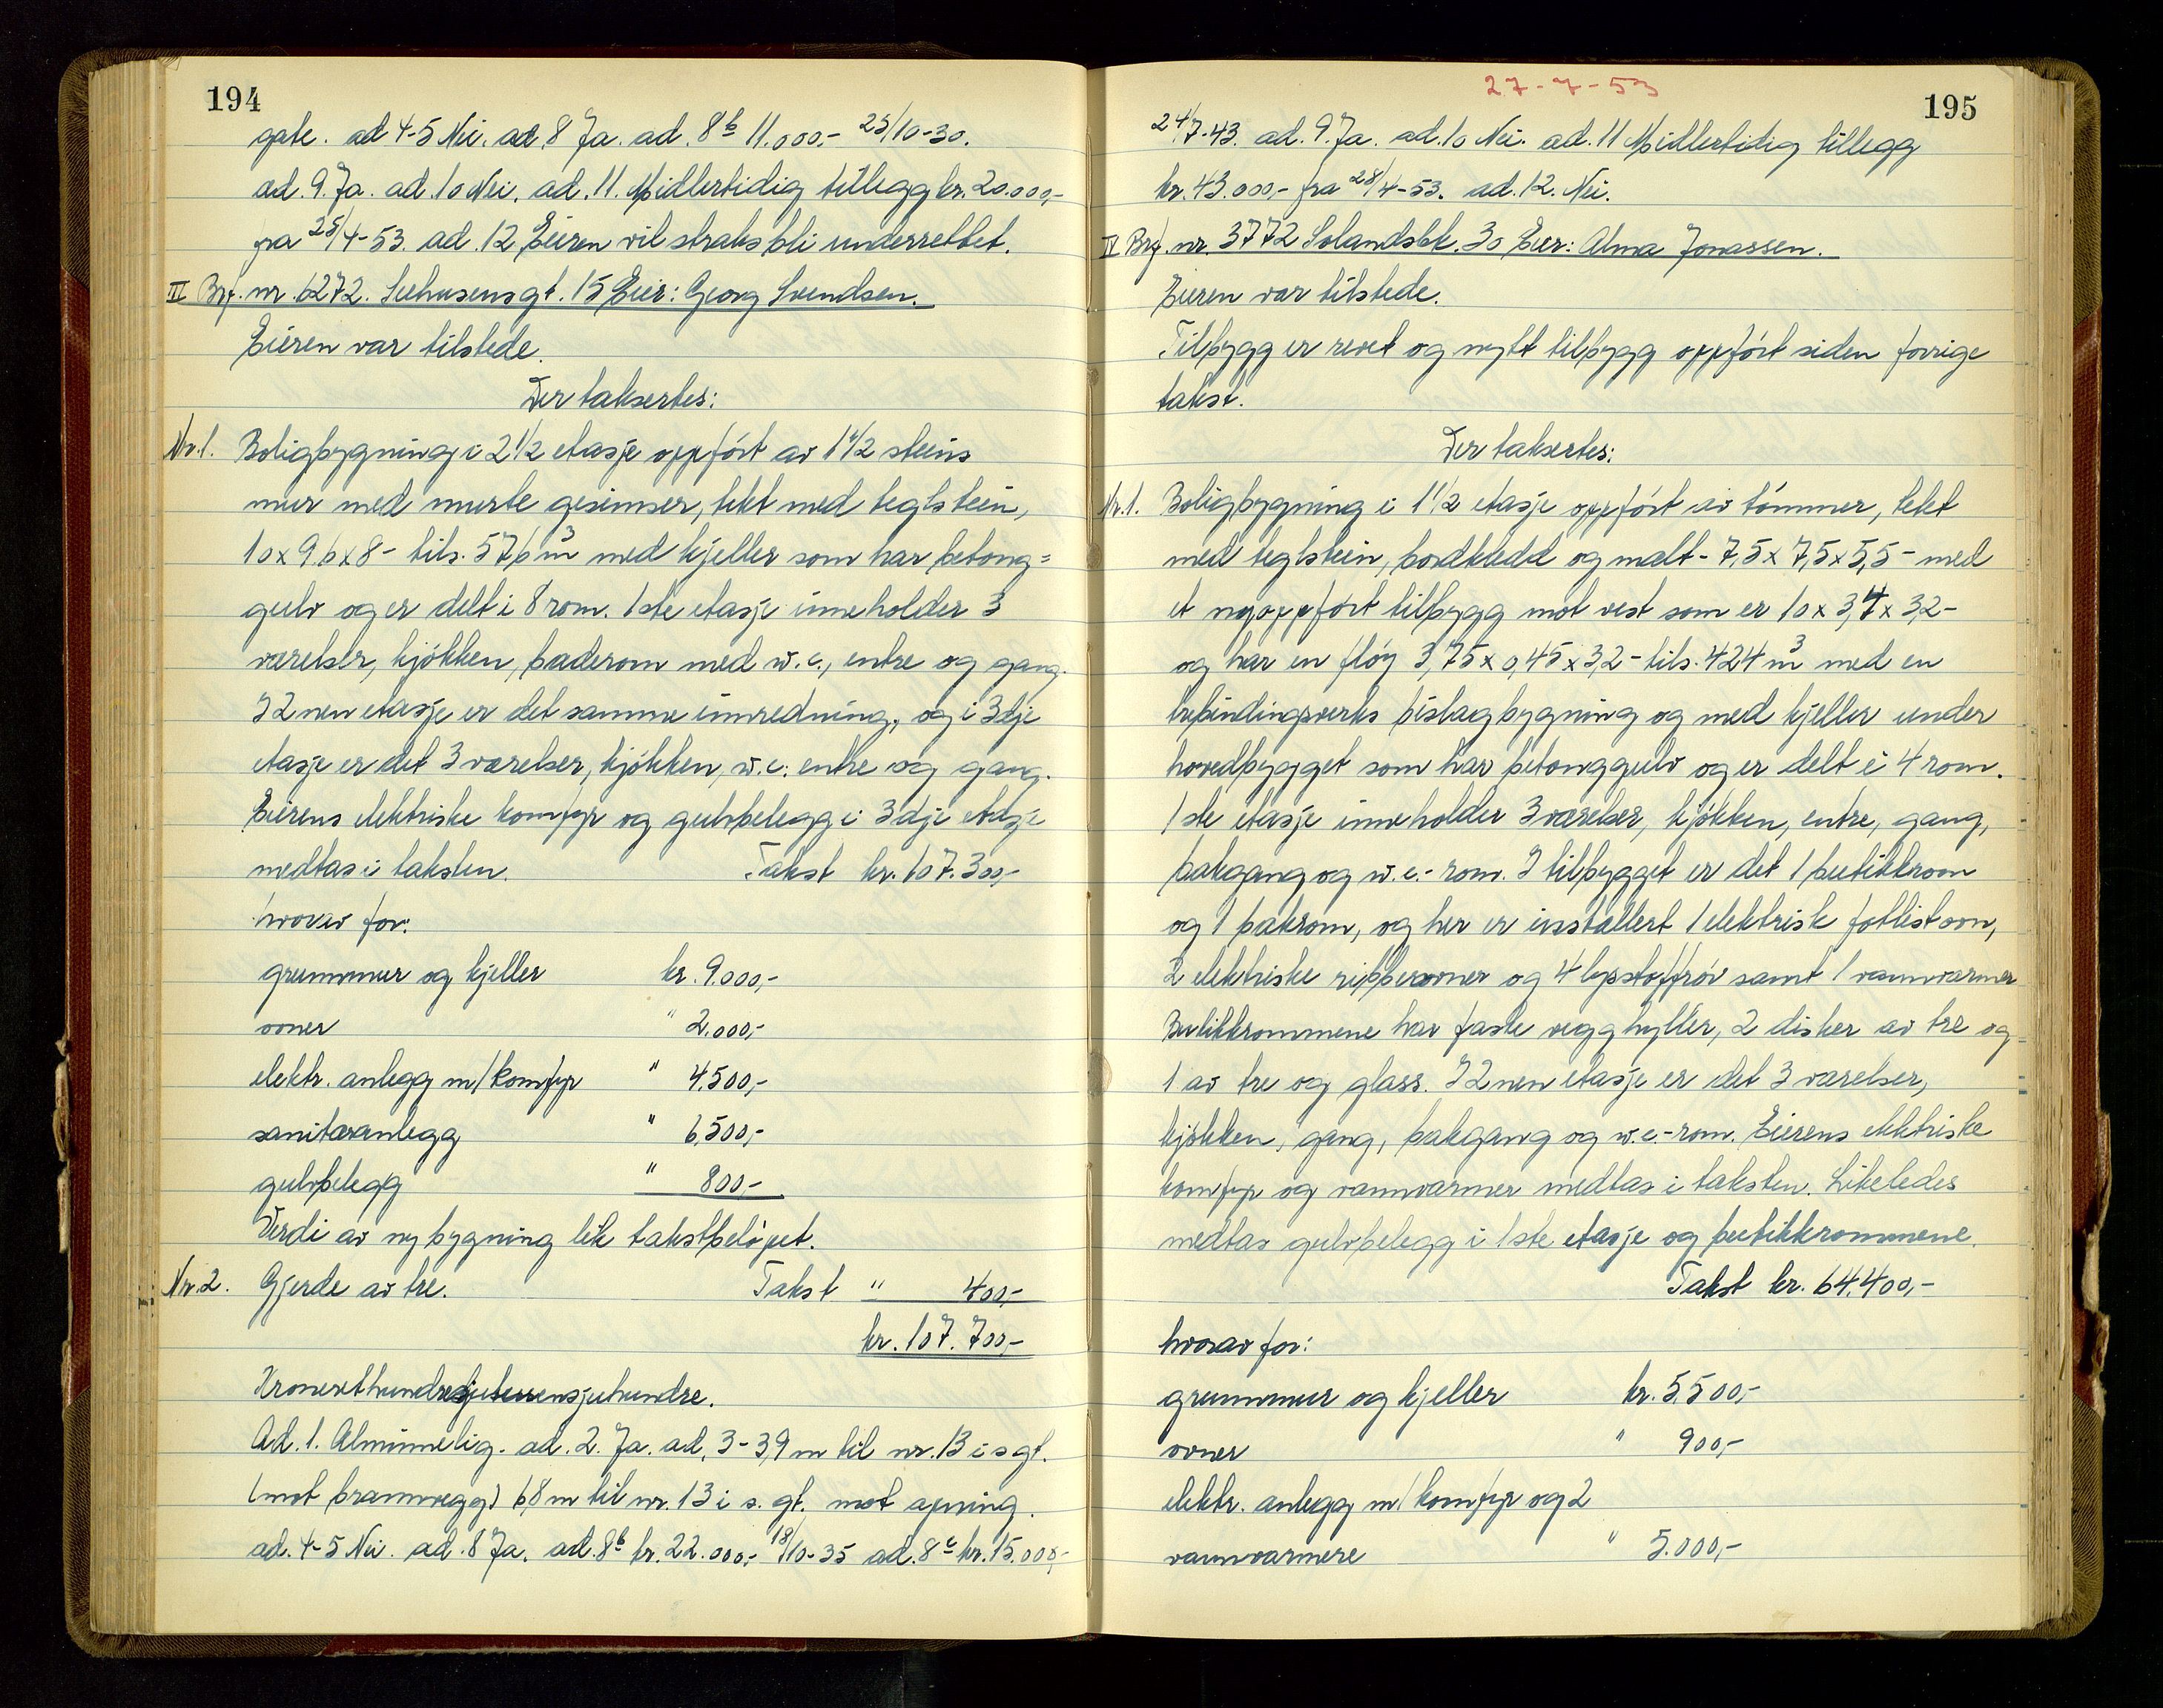 194
gate. ad 4-5 Nei. ad. 8 Ja. ad. 8b 11.000,- 25/10-30.
ad. 9. Ja. ad. 10 Nei. ad. 11. Midlertidig tillegg kr. 20.000,-
fra 25/4-53. ad. 12 Eieren vil straks bli underrettet.
III Brf. nr. 6272. Seehusensgt. 15 Eier: Georg Svendsen.
Eieren var tilstede.
Der taksertes:
Nr. 1. Boligbygning i 2 1/2 etasje oppført av 1 1/2 steins
mur med murte gesimser, tekt med teglstein,
10 x 9.6 x 8 - tils. 576 m3 med kjeller som har betong=
gulv og er delt i 8 rom. 1ste etasje inneholder 3
værelser, kjøkken, baderom med w.c., entre og gang.
I 2nen etasje er det samme innredning, og i 3dje
etasje er det 3 værelser, kjøkken, w.c. entre og gang.
Eierens elektriske komfyr og gulvbelegg i 3dje etasje
medtas i taksten. Takst kr. 107.300,-
hvorav for:
grunnmur og kjeller kr. 9.000,-
ovner " 2.000,-
elektr. anlegg m/komfyr " 4.500,-
sanitæranlegg " 6.500,-
gulvbelegg " 800,-
Verdi av ny bygning lik takstbeløpet.
Nr. 2. Gjerde av tre. Takst " 400,-
kr. 107.700,-
Kroneretthundreogsjutusensjuhundre.
Ad. 1. Alminnelig. ad. 2. Ja. ad. 3 - 3,9 m til nr. 13 i s gt.
(mot brannvegg) 6,8 m til nr. 13 i s. gt. mot apning.
ad. 4-5 Nei. ad. 8 Ja. ad. 8b kr. 22.000,- 18/10-35 ad. 8c kr. 15.000,-
27-7-53
195
24/7-43. ad. 9. Ja. ad. 10 Nei. ad. 11 Midlertidig tillegg
kr. 43.000,- fra 28/4-53. ad. 12. Nei.
IV Brf. nr. 3772 Solandsbk. 30 Eier: Alma Jonassen.
Eieren var tilstede.
Tilbygg er revet og nytt tilbygg oppført siden forrige
takst.
Der taksertes:
Nr. 1. Boligbygning i 1 1/2 etasje oppført av tømmer, tekt
med teglstein, bordkledd og malt - 7,5 x 7,5 x 5,5 - med
et nyoppført tilbygg mot vest som er 10 x 3,4 x 3,2 -
og har en fløy 3,75 x 0,45 x 3,2 - tils. 424 m3 med en
trebindingsverks bislagbygning og med kjeller under
hovedbygget som har betonggulv og er delt i 4 rom.
1ste etasje inneholder 3 værelser, kjøkken, entre, gang,
bakgang og w.c.-rom. I tilbygget er det 1 butikkrom
og 1 bakrom, og her er installert 1 elektrisk fotlistovn,
2 elektriske ribbeovner og 4 lysstoffrør samt 1 vannvarmer
Butikkrommene har faste vegghyller, 2 disker av tre og
1 av tre og glass. I 2nen etasje er det 3 værelser,
kjøkken, gang, bakgang og w.c.-rom. Eierens elektriske
komfyr og vannvarmer medtas i taksten. Likeledes
medtas gulvbelegg i 1ste etasje og butikkrommene.
Takst kr. 64.400,-
hvorav for:
grunnmur og kjeller kr. 5.500,-
ovner " 900,-
elektr. anlegg m/komfyr og 2
vannvarmere " 5.000,-